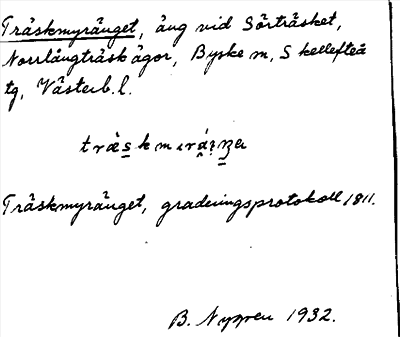 Träskmyränget, äng vid Sörträsket,
Norrlångträsk ägor, Byske sn, Skellefteå
tg, Västerb. l.
Träskmyränget, graderingsprotokoll 1811.
B. Nygren 1932.